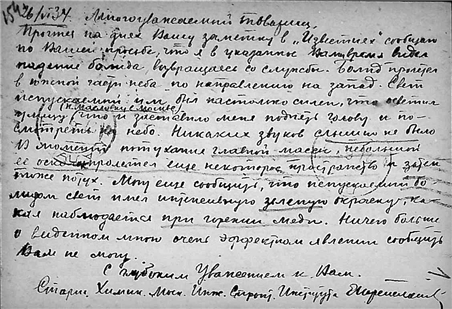 26/VI 34. Многоуважаемый товарищ,
Прочтя на днях Вашу заметку в „Известиях" сообщаю
по Вашей просьбе, что я в указанное Вами время видел
падение болида, возвращаясь со службы. Болид пролетел
в южной части неба по направлению на запад. Свет
испускаемый им был настолько силен, что осветил
(не маслов
улицу, что и заставило меня поднять голову и по-
смотреть на небо. Никаких звуков слышно не было.
В момент потухания главной массы, небольшой
её пролетел еще некоторое пространство и затем
тоже потух. Могу еще сообщить, что испускаемый бо-
лидом свет имел интенсивную зеленую окраску, ка-
кая наблюдается при горении меди. Ничего больше
о виденном мною очень эффектном явлении сообщить
Вам не могу.
С глубоким Уважением к Вам.
Старш. Химик. Моск. Инж. Строит. Института